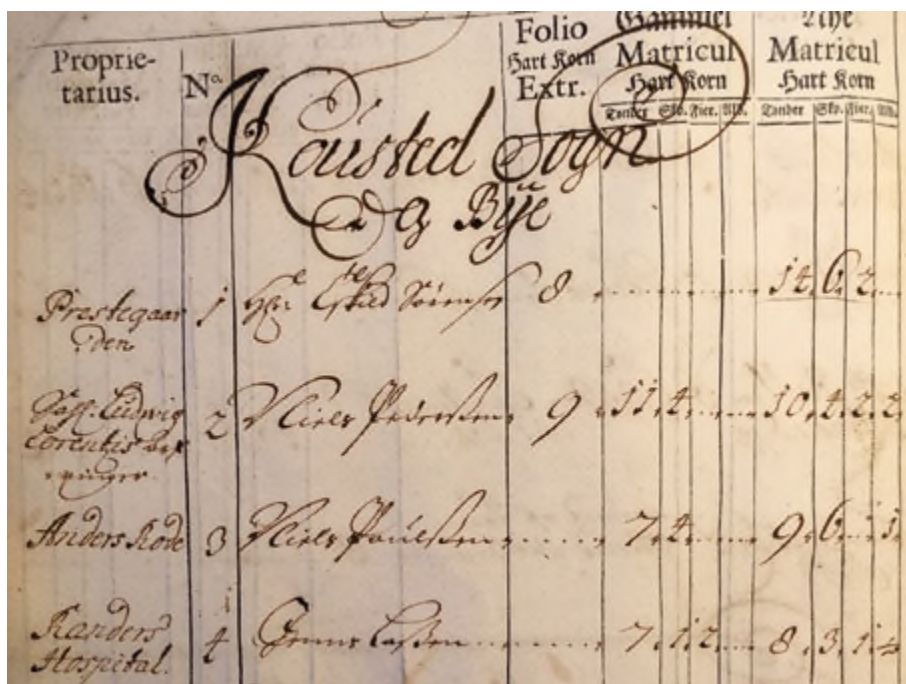 Proprie-
tarius.
No
Folio
Hart Korn
Extr.
Gammel
Matricul
Hart Korn
Tønder Skp. Fier. Alb.
Nye
Matricul
Hart Korn
Tønder Skp. Fier. Alb.
Kousted Sogn
og Bÿe
Prestegaar
den
1 Hr: Eskild 8 14. 6. 2.
Ludwig
2 Niels Pedersen 9 11. 4. 10. 4. 2. 2
Anders Rode 3 Niels Poulsen 7. 4. 9. 6. 1. 1.
Randers
Hospital. 4 Lassen 7. 1. 2. 8. 3. 1.